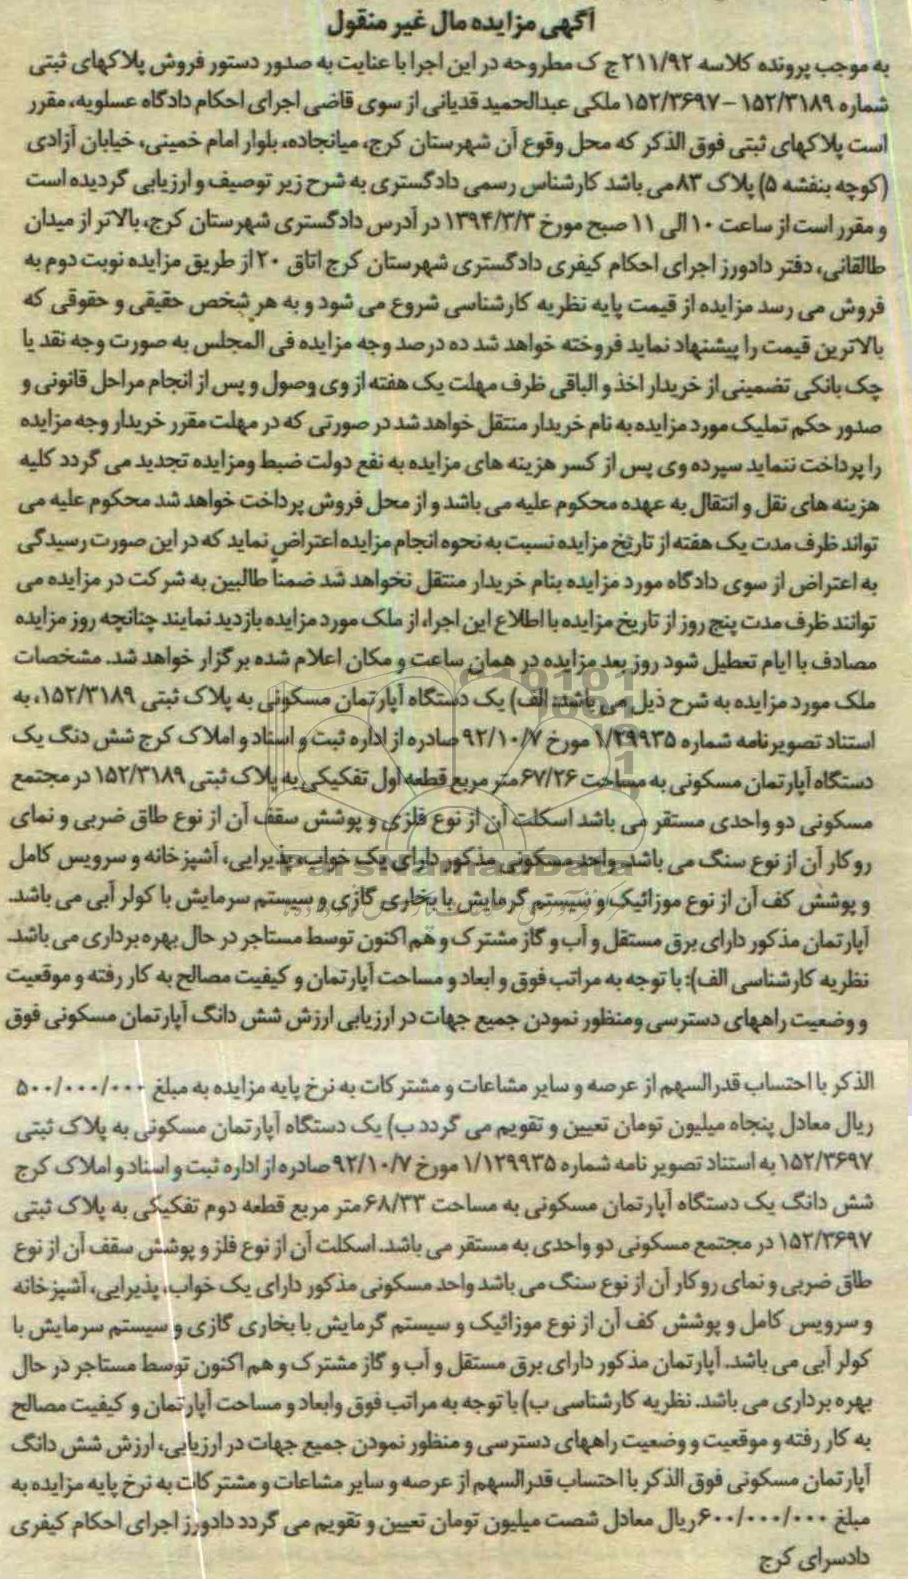 آگهی مزایده مال غیر منقول
به موجب پرونده کلاسه ۲۱۱/۹۲ ج ک مطروحه در این اجرا با عنایت به صدور دستور فروش پلاکهای ثبتی
شماره ۱۵۲/۳۱۸۹ – ۱۵۲/۳۶۹۷ ملکی عبدالحمید قدیانی از سوی قاضی اجرای احکام دادگاه عسلویه، مقرر
است پلاکهای ثبتی فوق الذکر که محل وقوع آن شهرستان کرج، میانجاده، بلوار امام خمینی، خیابان آزادی
(کوچه بنفشه ۵) پلاک ۸۳ می باشد کارشناس رسمی دادگستری به شرح زیر توصیف و ارزیابی گردیده است
و مقرر است از ساعت ۱۰ الی ۱۱ صبح مورخ ۱۳۹۴/۳/۳ در آدرس دادگستری شهرستان کرج، بالاتر از میدان
طالقانی، دفتر دادورز اجرای احکام کیفری دادگستری شهرستان کرج اتاق ۲۰ از طریق مزایده نوبت دوم به
فروش می رسد مزایده از قیمت پایه نظریه کارشناسی شروع می شود و به هر شخص حقیقی و حقوقی که
بالاترین قیمت را پیشنهاد نماید فروخته خواهد شد ده درصد وجه مزایده فی المجلس به صورت وجه نقد یا
چک بانکی تضمینی از خریدار اخذ و الباقی ظرف مهلت یک هفته از وی وصول و پس از انجام مراحل قانونی و
صدور حکم تملیک مورد مزایده به نام خریدار منتقل خواهد شد در صورتی که در مهلت مقرر خریدار وجه مزایده
را پرداخت ننماید سپرده وی پس از کسر هزینه های مزایده به نفع دولت ضبط ومزایده تجدید می گردد کلیه
هزینه های نقل و انتقال به عهده محکوم علیه می باشد و از محل فروش پرداخت خواهد شد محکوم علیه می
تواند ظرف مدت یک هفته از تاریخ مزایده نسبت به نحوه انجام مزایده اعتراض نماید که در این صورت رسیدگی
به اعتراض از سوی دادگاه مورد مزایده بنام خریدار منتقل نخواهد شد ضمنا طالبین به شرکت در مزایده می
توانند ظرف مدت پنج روز از تاریخ مزایده با اطلاع این اجراء از ملک مورد مزایده بازدید نمایند چنانچه روز مزایده
مصادف با ایام تعطیل شود روز بعد مزایده در همان ساعت و مکان اعلام شده برگزار خواهد شد. مشخصات
ملک مورد مزایده به شرح ذیل می باشد: الف) یک دستگاه آپارتمان مسکونی به پلاک ثبتی ۱۵۲/۳۱۸۹، به
استناد تصویرنامه شماره ۱/۲۹۹۳۵ مورخ ۹۲/۱۰/۷ صادره از اداره ثبت و اسناد و املاک کرج شش دنگ یک
دستگاه آپارتمان مسکونی به مساحت ۶۷/۲۶ متر مربع قطعه اول تفکیکی به پلاک ثبتی ۱۵۲/۳۱۸۹ در مجتمع
مسکونی دو واحدی مستقر می باشد اسکلت آن از نوع فلزی و پوشش سقف آن از نوع طاق ضربی و نمای
روکار آن از نوع سنگ می باشد. واحد مسکونی مذکور دارای یک خواب، پذیرایی، آشپزخانه و سرویس کامل
و پوشش کف آن از نوع موزائیک و سیستم گرمایش با بخاری گازی و سیستم سرمایش با کولر آبی می باشد.
آپارتمان مذکور دارای برق مستقل و آب و گاز مشترک و هم اکنون توسط مستاجر در حال بهره برداری می باشد.
نظریه کارشناسی الف): با توجه به مراتب فوق و ابعاد و مساحت آپارتمان و کیفیت مصالح به کار رفته و موقعیت
و وضعیت راههای دسترسی ومنظور نمودن جمیع جهات در ارزیابی ارزش شش دانگ آپارتمان مسکونی فوق
الذکر با احتساب قدرالسهم از عرصه و سایر مشاعات و مشترکات به نرخ پایه مزایده به مبلغ ۵۰۰/۰۰۰/۰۰۰
ریال معادل پنجاه میلیون تومان تعیین و تقویم می گردد ب) یک دستگاه آپارتمان مسکونی به پلاک ثبتی
۱۵۲/۳۶۹۷ به استناد تصویر نامه شماره ۱/۱۲۹۹۳۵ مورخ ۹۲/۱۰/۷ صادره از اداره ثبت و اسناد و املاک کرج
شش دانگ یک دستگاه آپارتمان مسکونی به مساحت ۶۸/۳۳ متر مربع قطعه دوم تفکیکی به پلاک ثبتی
۱۵۲/۳۶۹۷ در مجتمع مسکونی دو واحدی به مستقر می باشد. اسکلت آن از نوع فلز و پوشش سقف آن از نوع
طاق ضربی و نمای روکار آن از نوع سنگ می باشد واحد مسکونی مذکور دارای یک خواب، پذیرایی، آشپزخانه
و سرویس کامل و پوشش کف آن از نوع موزائیک و سیستم گرمایش با بخاری گازی و سیستم سرمایش با
کولر آبی می باشد. آپارتمان مذکور دارای برق مستقل و آب و گاز مشترک و هم اکنون توسط مستاجر در حال
بهره برداری می باشد. نظریه کارشناسی ب) با توجه به مراتب فوق وابعاد و مساحت آپارتمان و کیفیت مصالح
به کار رفته و موقعیت و وضعیت راههای دسترسی و منظور نمودن جمیع جهات در ارزیابی، ارزش شش دانگ
آپارتمان مسکونی فوق الذکر با احتساب قدرالسهم از عرصه و سایر مشاعات و مشترکات به نرخ پایه مزایده به
مبلغ ۶۰۰/۰۰۰/۰۰۰ ریال معادل شصت میلیون تومان تعیین و تقویم می گردد دادورز اجرای احکام کیفری
دادسرای کرج
ParsNamadData